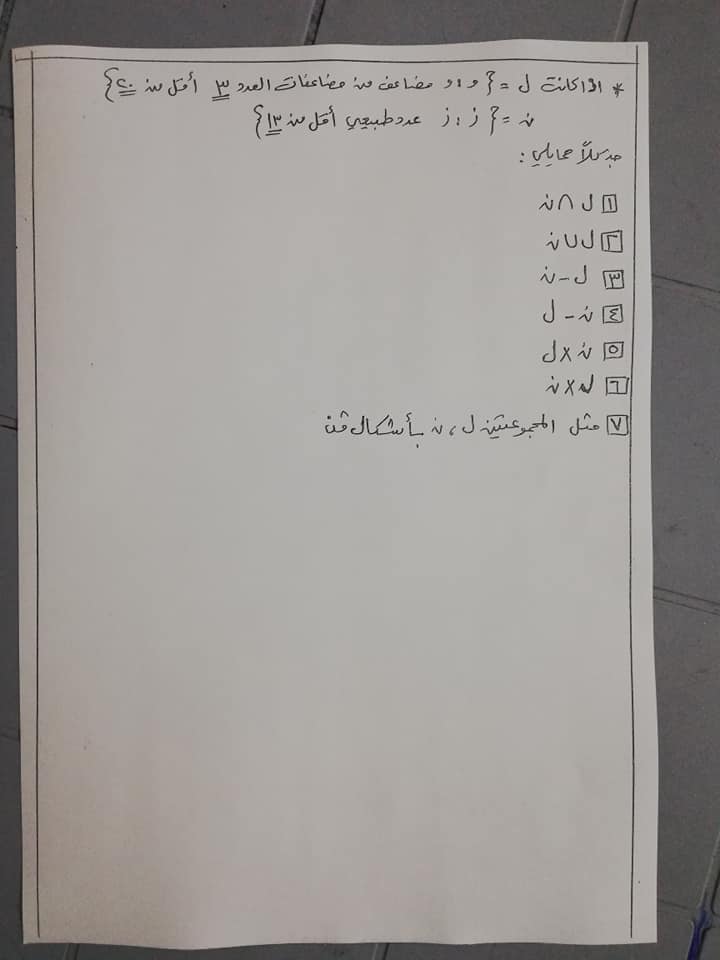 * اذا كانت ل = { و : و مضاعف من مضاعفات العدد ٣ أقل من ٢٠ }
ن = { ز : ز عدد طبيعي أقل من ١٣ }
جد كلاً مما يلي :
١ ل ∩ ن
٢ ل ∪ ن
٣ ل - ن
٤ ن - ل
٥ ن × ل
٦ ل × ن
٧ مثل المجموعتين ل ، ن بأشكال فن